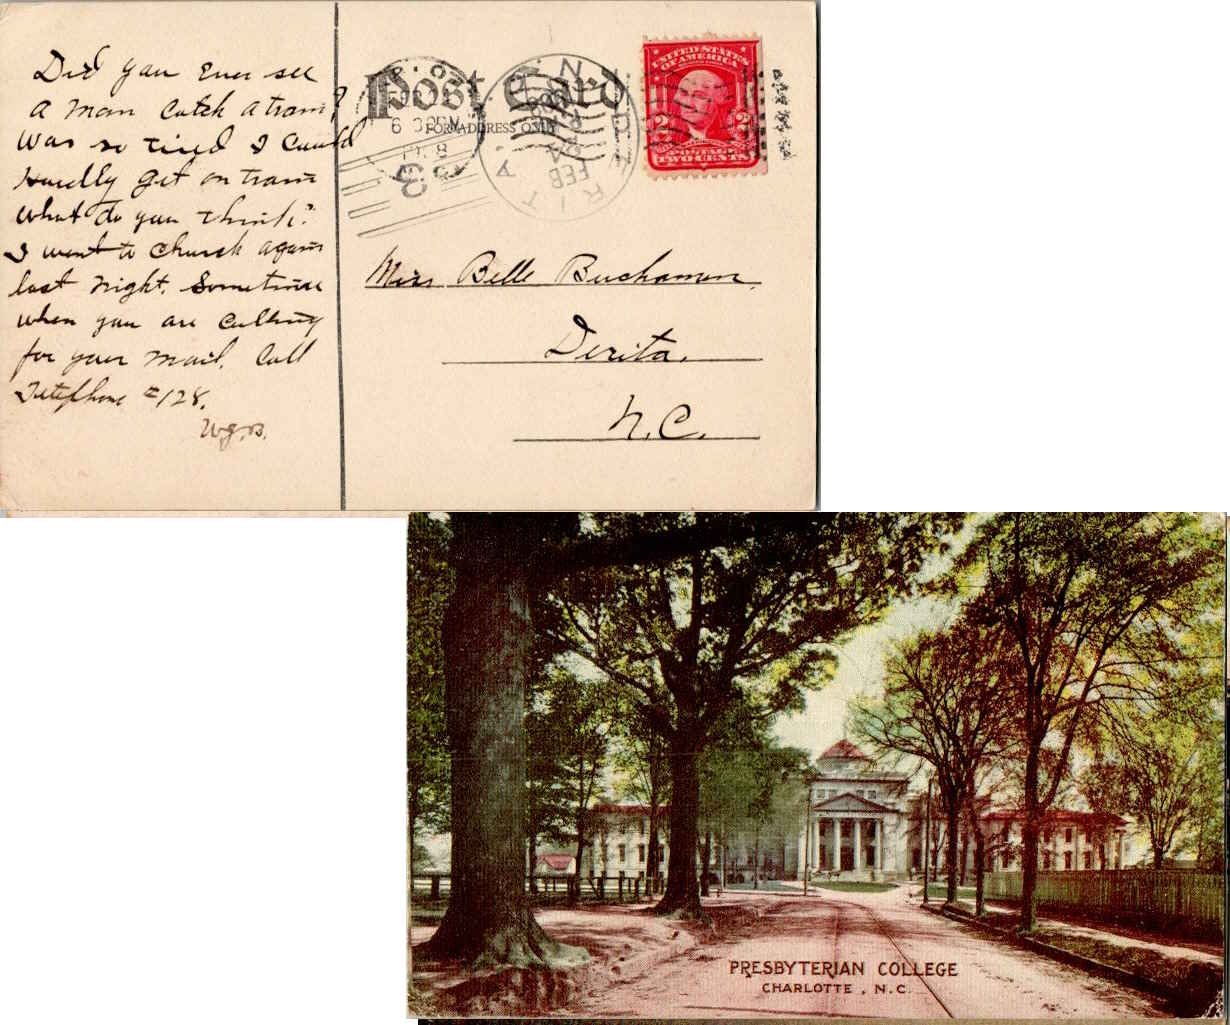 Did you ever see
a man catch a train?
Was so tired I could
Hardly get on train
What do you think?
I went to Church again
last night. Sometime
when you are calling
for your mail, Call
Telephone #128.
W.G.B.
Post Card
FOR ADDRESS ONLY
P. O.
6 30 PM
3
DERITA N.
FEB
UNITED STATES
OF AMERICA
2 2
POSTAGE
TWO CENTS
Miss Belle Buchanan,
Derita,
N.C.
PRESBYTERIAN COLLEGE
CHARLOTTE, N.C.